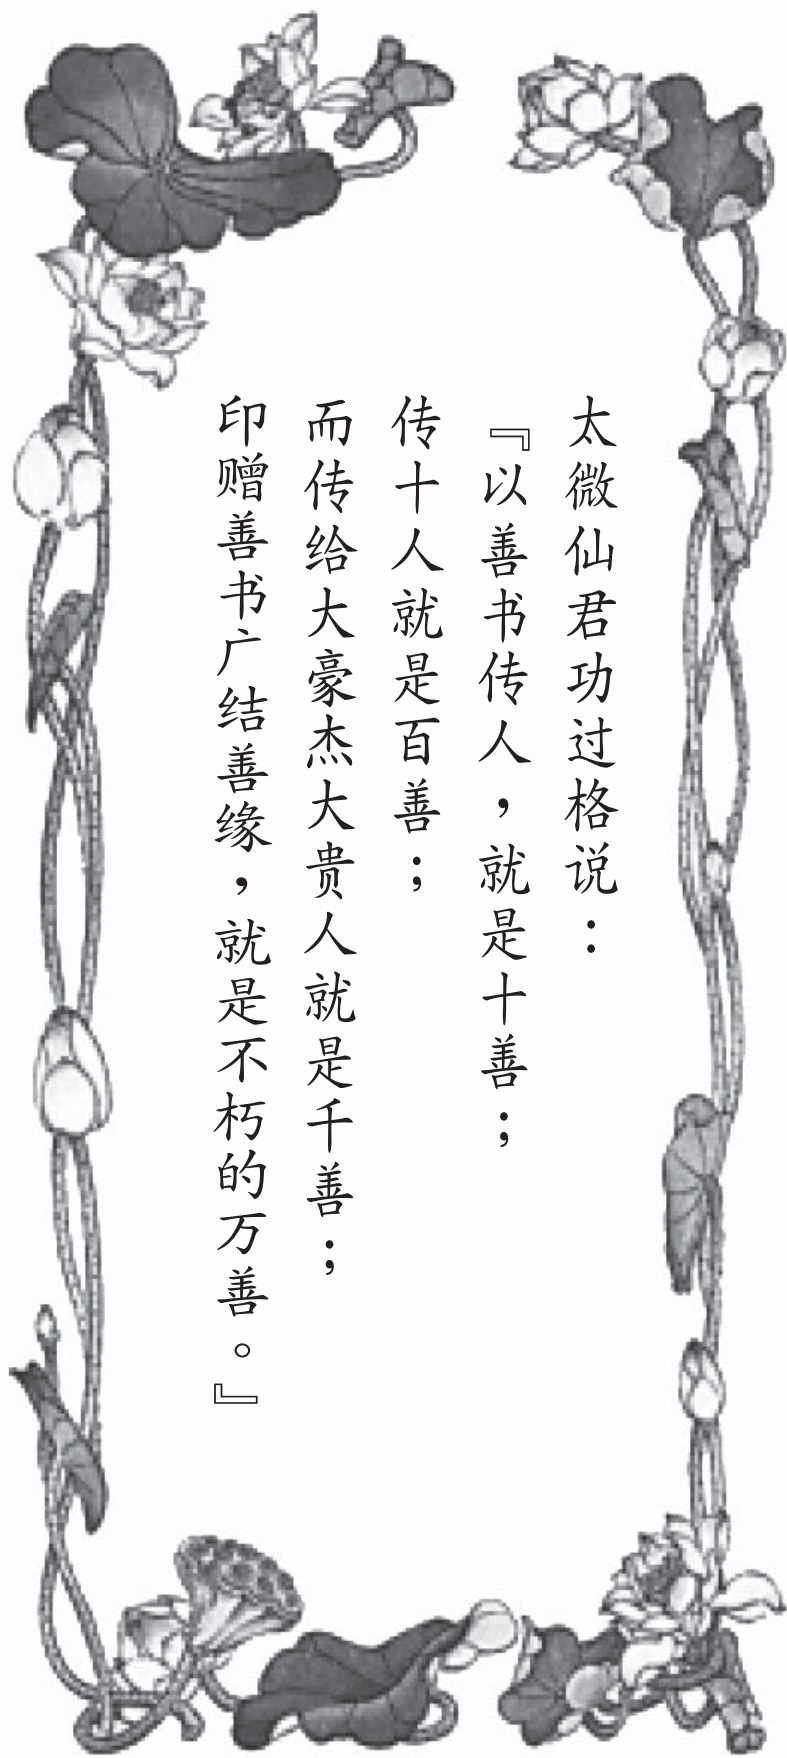 太微仙君功过格说：
『以善书传人，就是十善；
传十人就是百善；
而传给大豪杰大贵人就是千善；
印赠善书广结善缘，就是不朽的万善。』